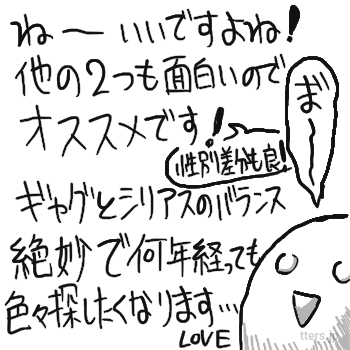 ね〜いいですよね!
他の2つも面白いので
オススメです!
性別差分も良!
ギャグとシリアスのバランス
絶妙で何年経っても
色々探したくなります…
LOVE